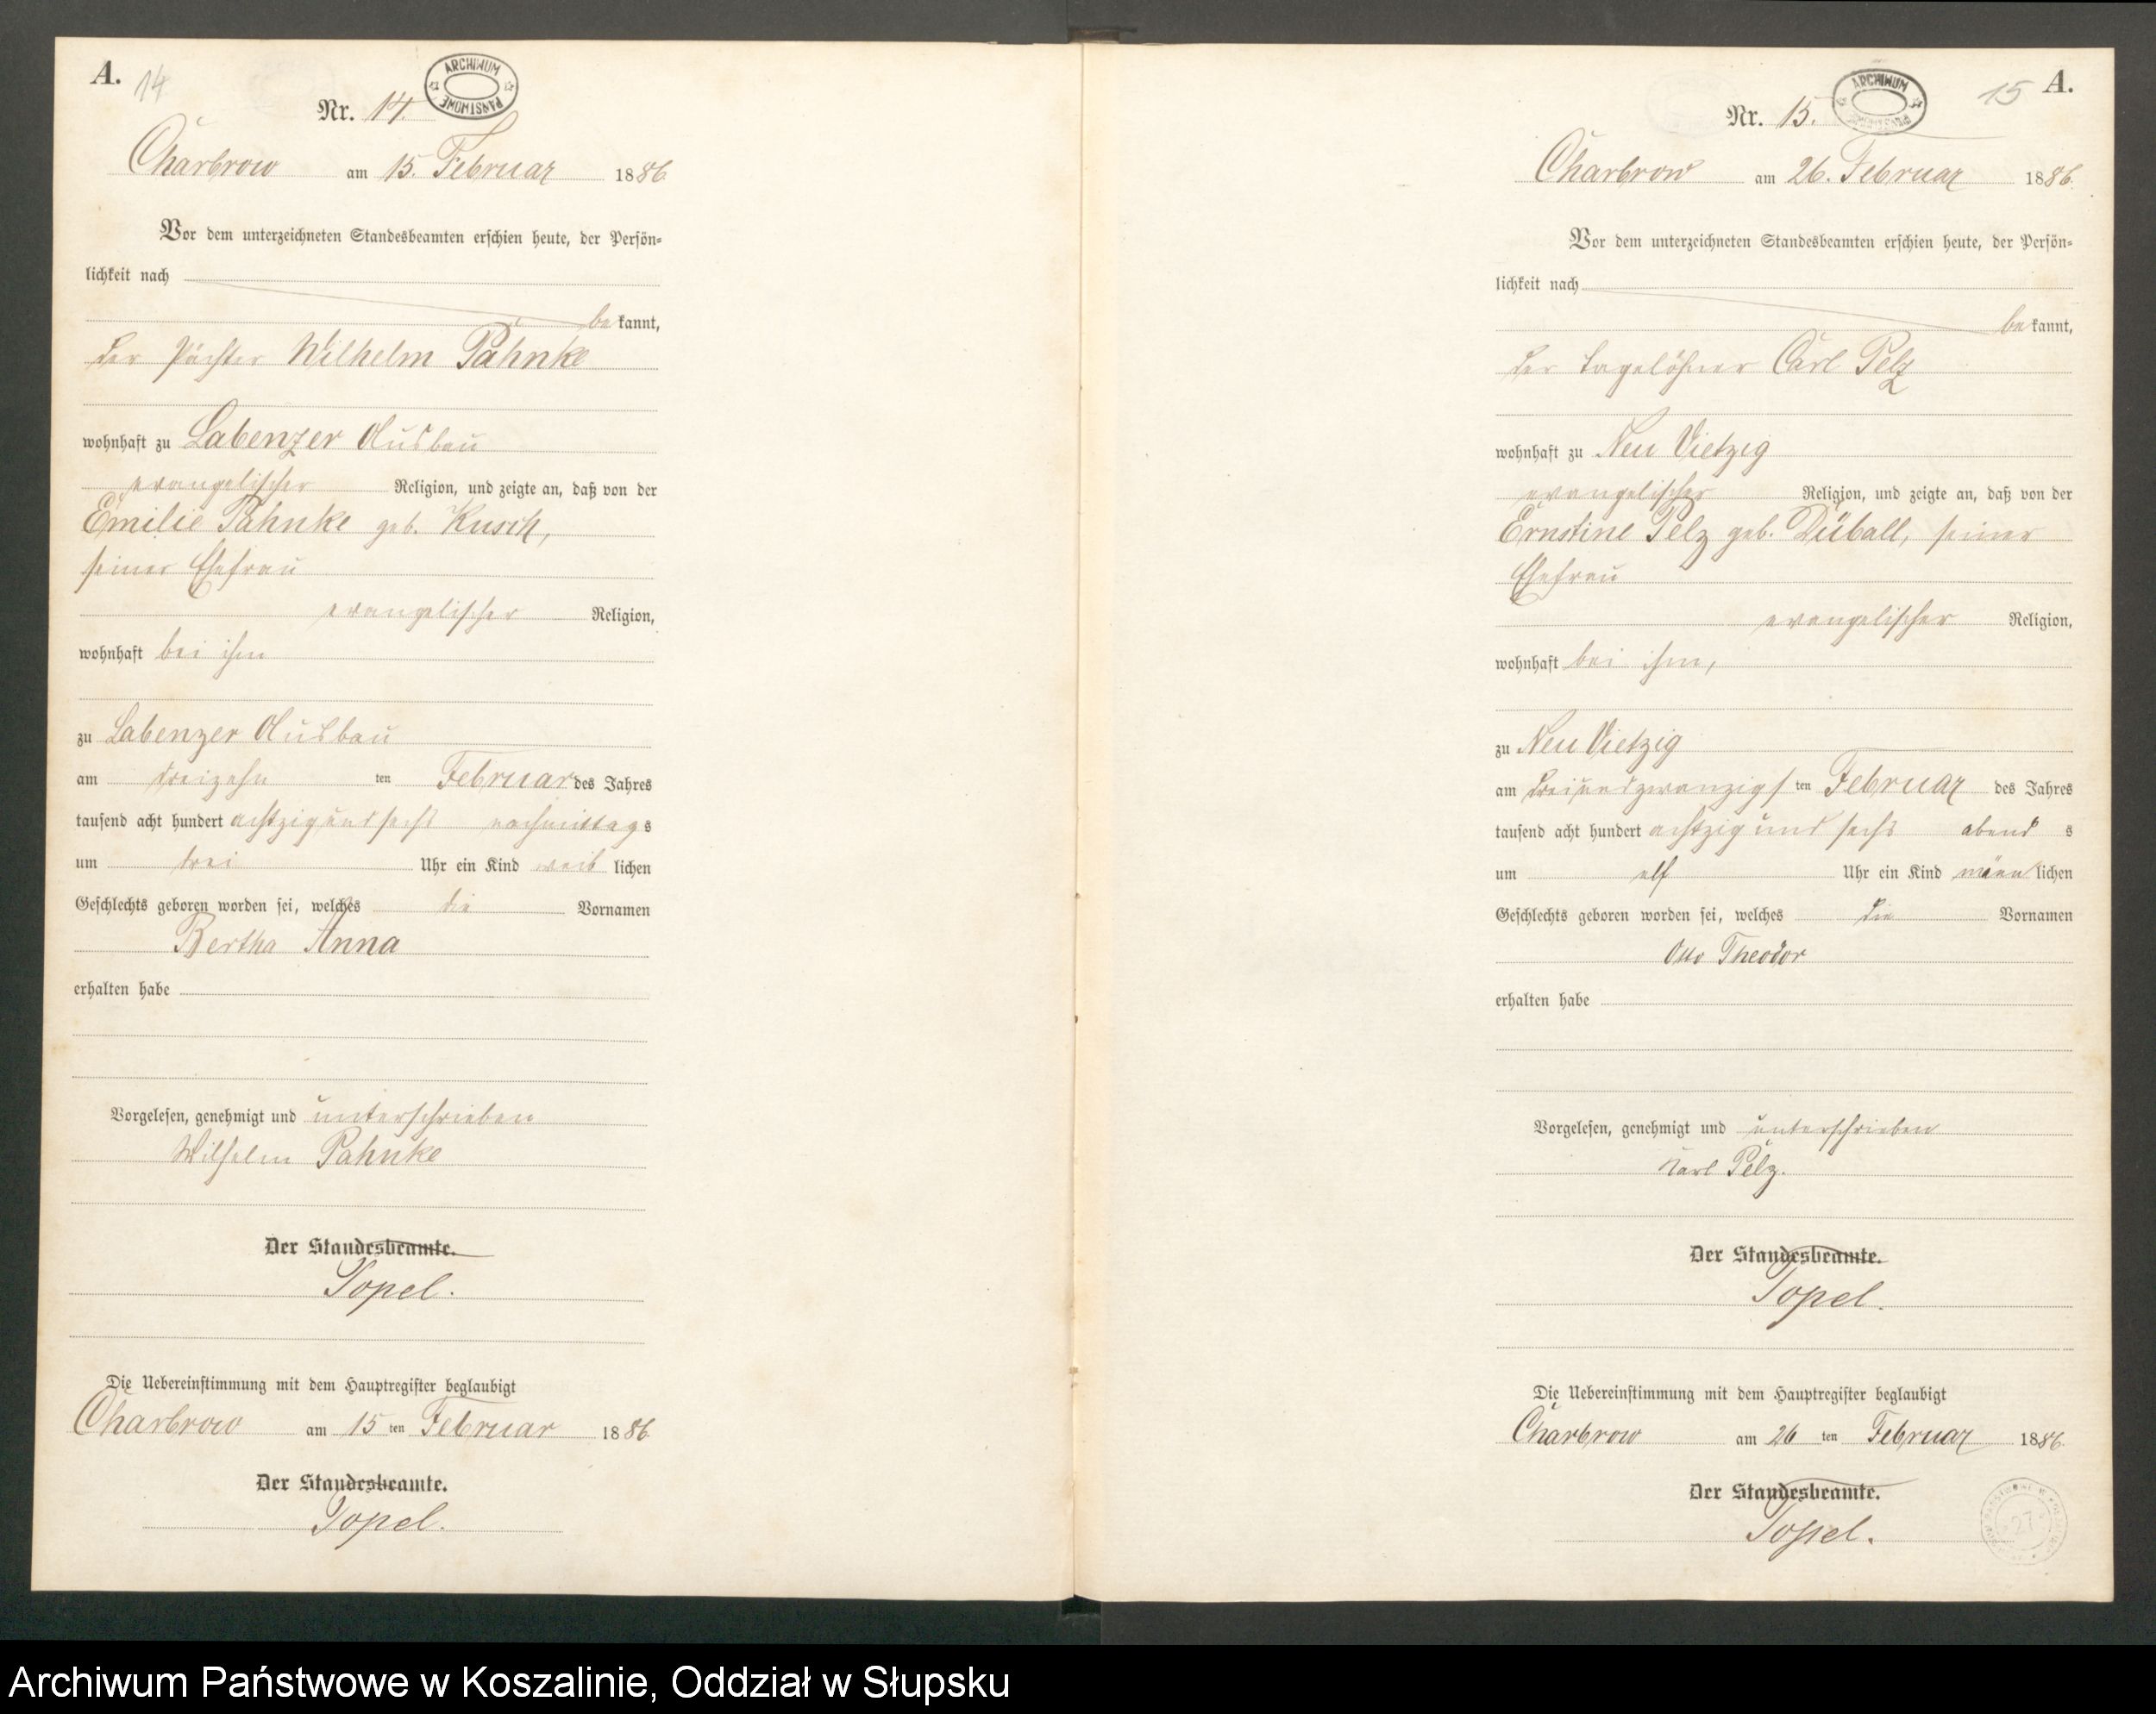 A.
14
ARCHIWUM PAŃSTWOWE
Nr. 14.
Charbrow am 15. Februar 1886.
Vor dem unterzeichneten Standesbeamten erschien heute, der Persön-
lichkeit nach
bekannt,
der Pächter Wilhelm Pahnke
wohnhaft zu Labenzer Ausbau
evangelischer Religion, und zeigte an, daß von der
Emilie Pahnke geb. Kusch,
seiner Ehefrau
evangelischer Religion,
wohnhaft bei ihm
zu Labenzer Ausbau
am dreizehn ten Februar des Jahres
tausend acht hundert achtzig und sechs nachmittags
um drei Uhr ein Kind weiblichen
Geschlechts geboren worden sei, welches die Vornamen
Bertha Anna
erhalten habe
Vorgelesen, genehmigt und unterschrieben
Wilhelm Pahnke
Der Standesbeamte.
Topel.
Die Uebereinstimmung mit dem Hauptregister beglaubigt
Charbrow am 15 ten Februar 1886.
Der Standesbeamte.
Topel.
15 A.
ARCHIWUM
Nr. 15.
Charbrow am 26. Februar 1886.
Vor dem unterzeichneten Standesbeamten erschien heute, der Persön-
lichkeit nach
bekannt,
der Tagelöhner Carl Pelz
wohnhaft zu Neu Vietzig
evangelischer Religion, und zeigte an, daß von der
Ernstine Pelz geb. Düball, seiner
Ehefrau
evangelischer Religion,
wohnhaft bei ihm,
zu Neu Vietzig
am dreiundzwanzigsten Februar des Jahres
tausend acht hundert achtzig und sechs abends
um elf Uhr ein Kind männlichen
Geschlechts geboren worden sei, welches die Vornamen
Otto Theodor
erhalten habe
Vorgelesen, genehmigt und unterschrieben
Karl Pelz.
Der Standesbeamte.
Topel.
Die Uebereinstimmung mit dem Hauptregister beglaubigt
Charbrow am 26 ten Februar 1886.
Der Standesbeamte.
Topel.
27
Archiwum Państwowe w Koszalinie, Oddział w Słupsku